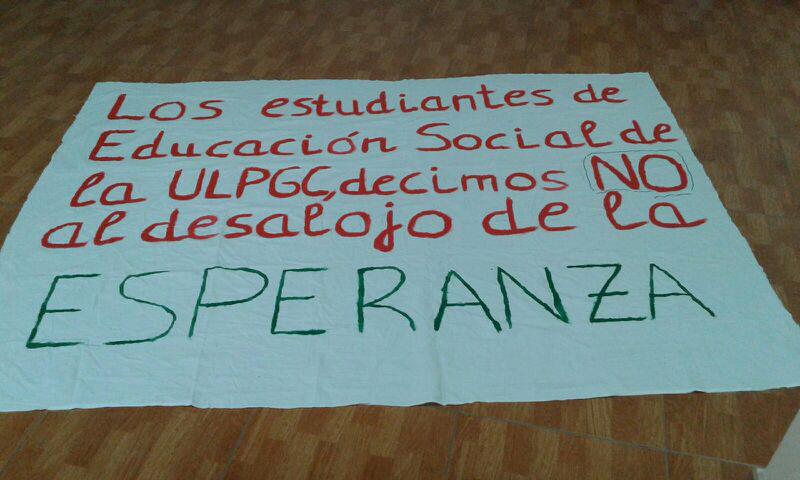 Los estudiantes de
Educación Social de
la ULPGC, decimos NO
al desalojo de la
ESPERANZA